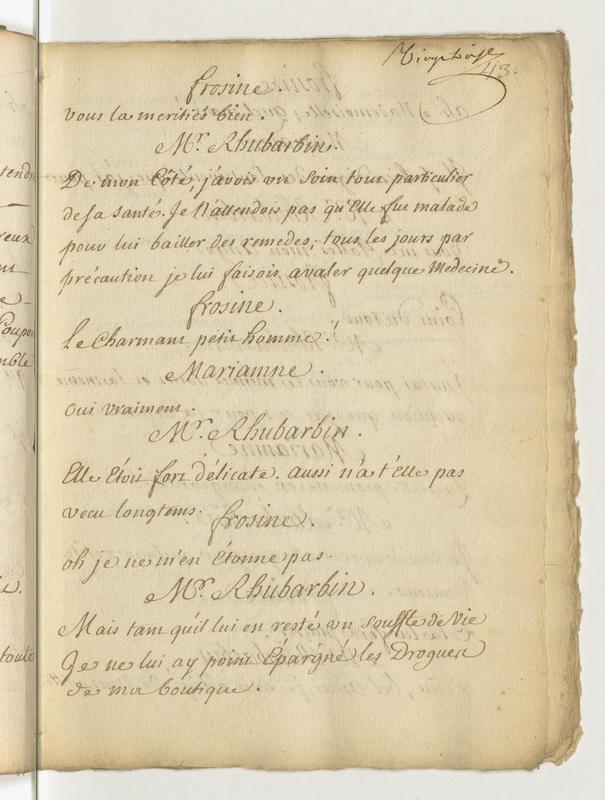 43.
frosine.
vous la merities bien.
Mr. Rhubarbin.
De mon Côté, j'avois un soin tout particulier
de sa santé. Je N'attendois pas qu'Elle fut malade
pour lui bailler des remedes; tous les jours par
précaution je lui faisois avaler quelque Medecine.
frosine.
Le Charmant petit homme!
Mariamne.
oui vraiment.
Mr. Rhubarbin.
Elle Etoit fort délicate. aussi n'a t'elle pas
vecu longtems.
frosine.
oh je ne m'en Étonne pas.
Mr. Rhubarbin.
Mais tant qu'il lui en resté un souffle de Vie
Je ne lui ay point Épargné les Drogues
de ma boutique.